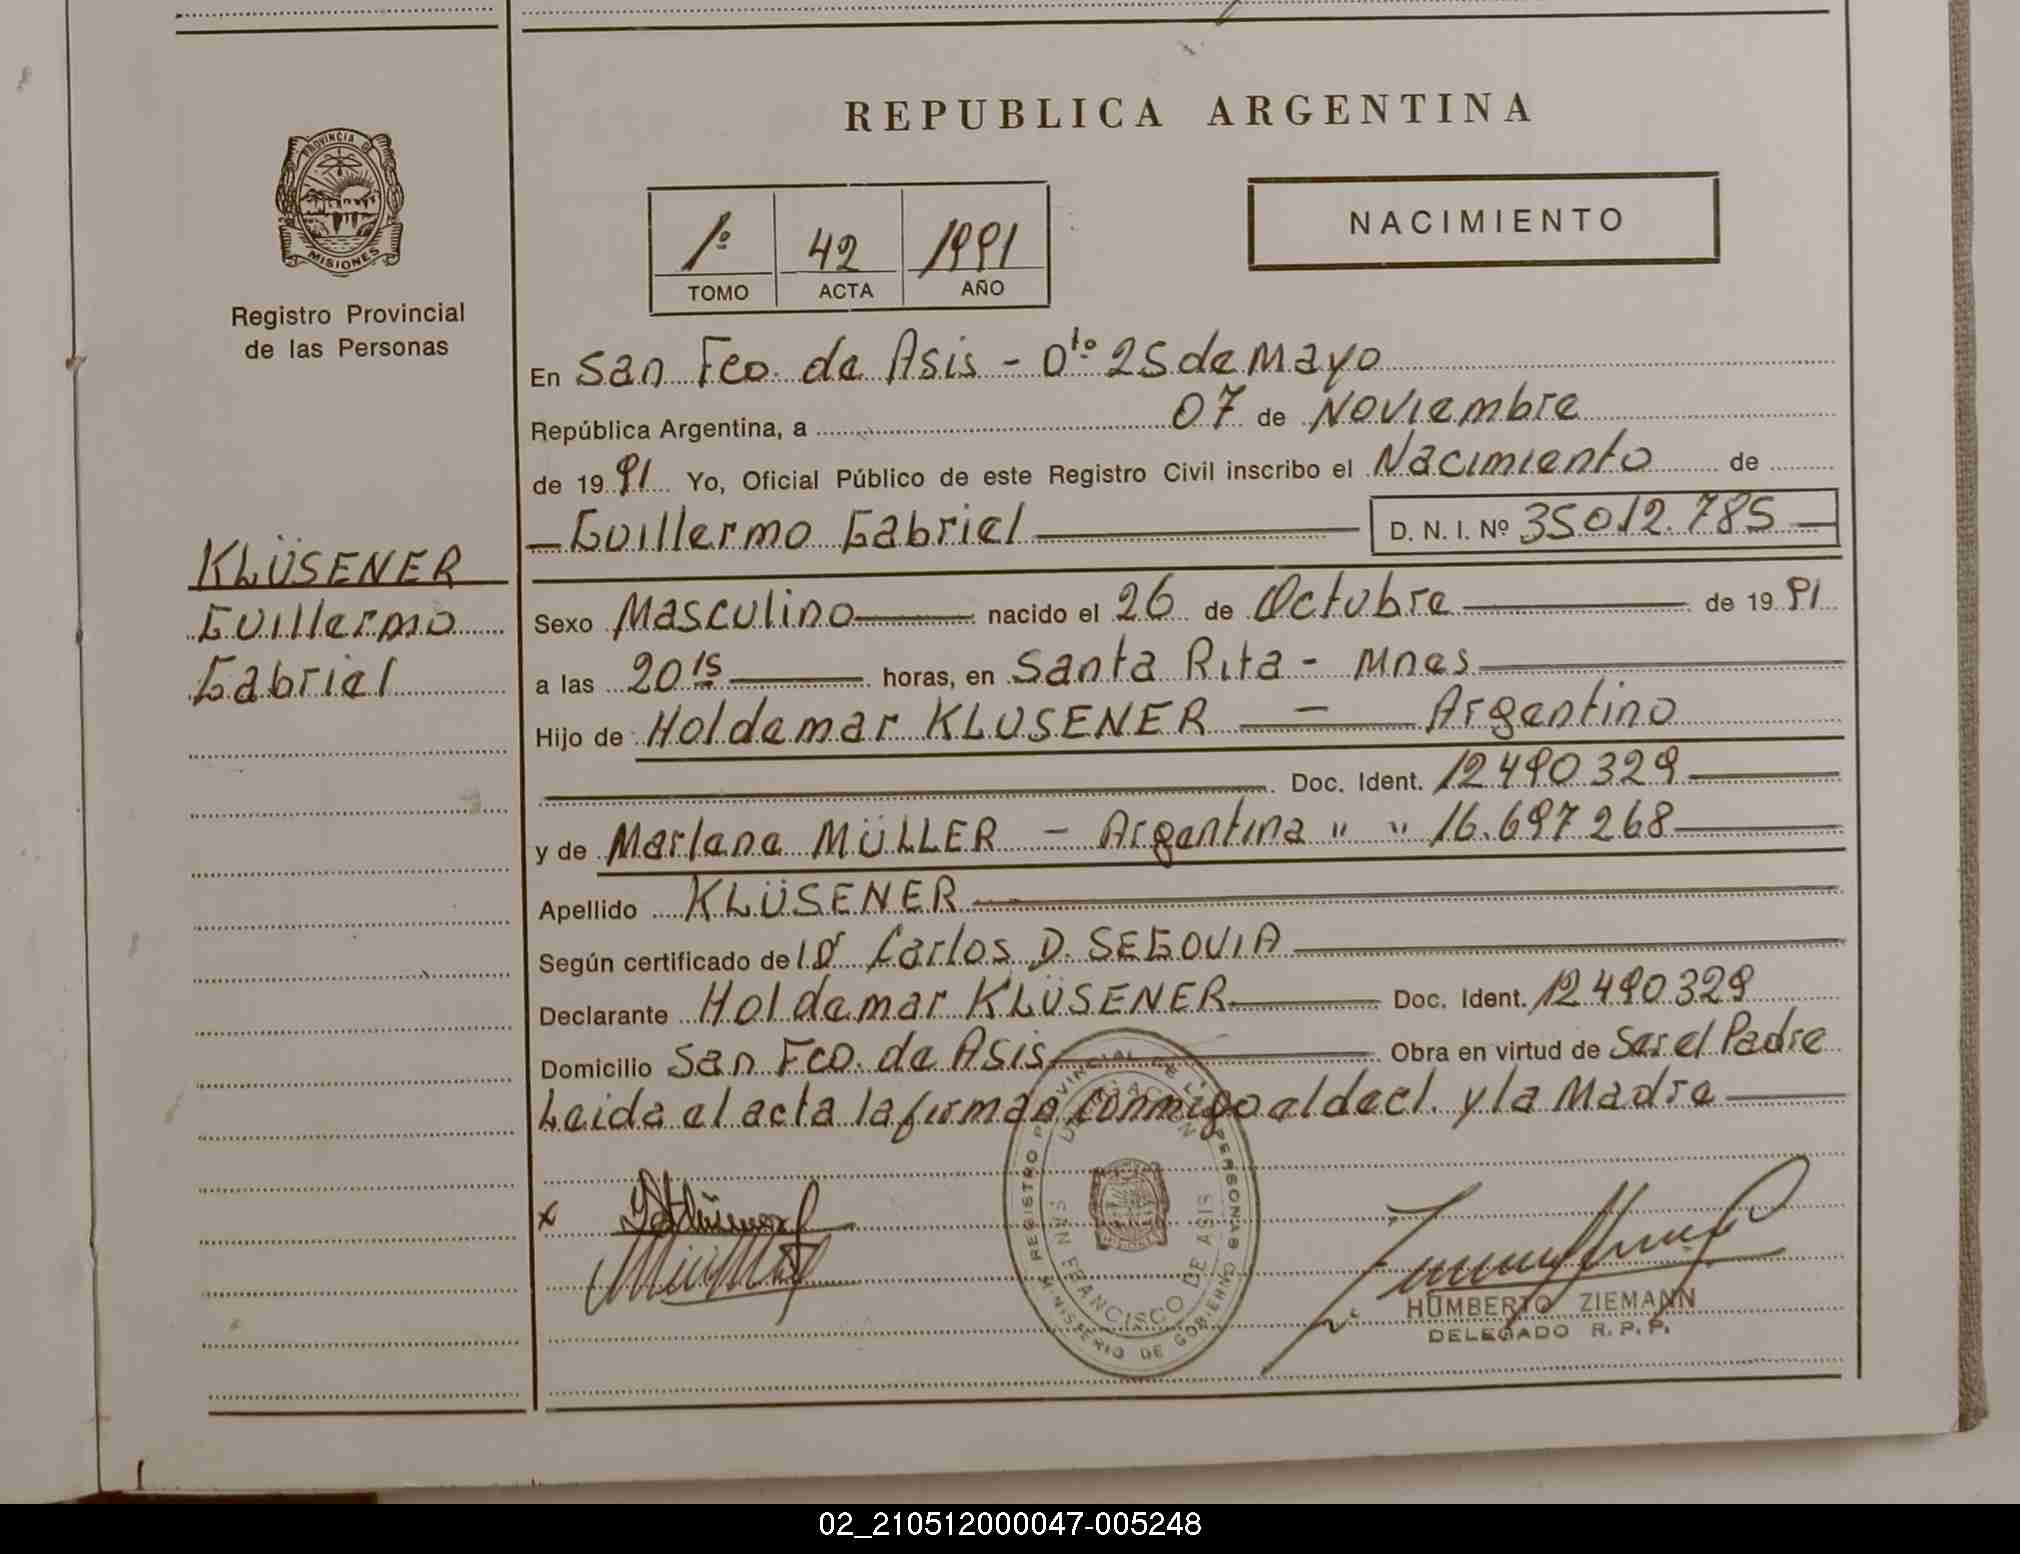 REPUBLICA ARGENTINA
PROVINCIA DE
MISIONES
Registro Provincial
de las Personas
1º 42 1991
TOMO ACTA AÑO
NACIMIENTO
En San Fco. de Asis - Dto. 25 de Mayo
República Argentina, a 07 de Noviembre
de 1991 Yo, Oficial Público de este Registro Civil inscribo el Nacimiento de
Guillermo Gabriel D. N. I. Nº 35012.785
KLÜSENER
Guillermo
Gabriel
Sexo Masculino nacido el 26 de Octubre de 1991
a las 20 15 horas, en Santa Rita - Mnes
Hijo de Holdemar KLUSENER - Argentino
Doc. Ident. 12490329
y de Marlene MÜLLER - Argentina " " 16.697268
Apellido KLÜSENER
Según certificado de Carlos D. SEGOVIA
Declarante Holdemar KLÜSENER Doc. Ident. 12490329
Domicilio San Fco. de Asis Obra en virtud de Ser el Padre
Leida el acta la firman conmigo el decl. y la Madre
REGISTRO PROVINCIAL DE LAS PERSONAS
DELEGACION
SAN FRANCISCO DE ASIS
MINISTERIO DE GOBIERNO
x
HUMBERTO ZIEMANN
DELEGADO R. P. P.
02_210512000047-005248